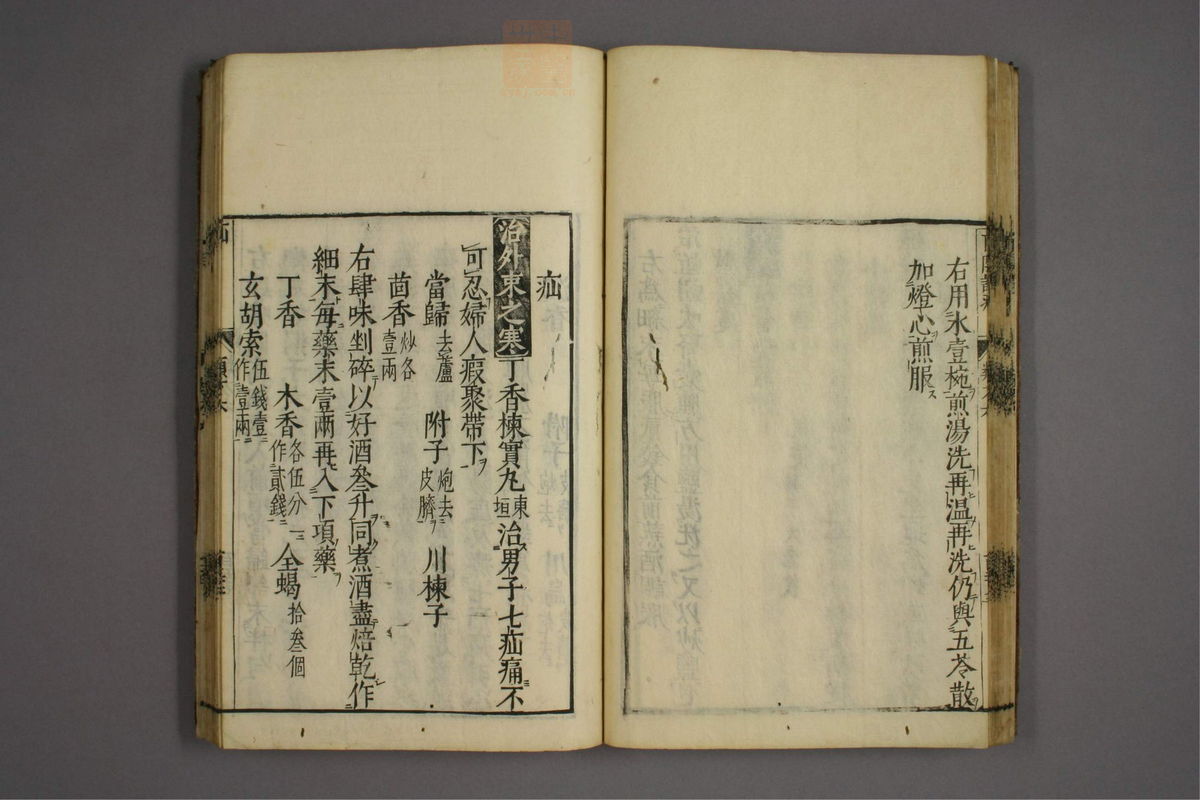 右用水壹椀煎湯洗再温再洗仍與五苓散
加燈心煎服
疝
治外束之寒丁香楝實丸東垣治男子七疝痛不
可忍婦人瘕聚帶下
當歸去蘆 附子炮去皮臍 川楝子
茴香炒各壹兩
右肆味剉碎以好酒叁升同煮酒盡焙乾作
細末每藥末壹兩再入下項藥
丁香 木香各伍分一作貳錢 全蝎拾叁個
玄胡索伍錢壹作壹兩